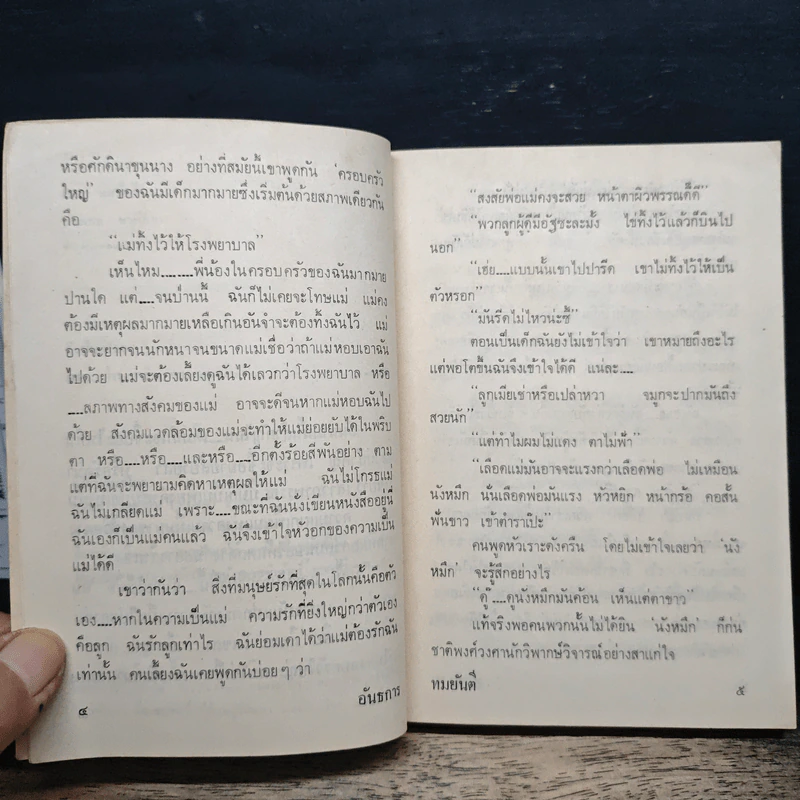 หรือศักดินาขุนนาง อย่างที่สมัยนี้เขาพูดกัน ‘ครอบครัว
ใหญ่’ ของฉันมีเด็กมากมายซึ่งเริ่มต้นด้วยสภาพเดียวกัน
คือ
“แม่ทิ้งไว้ให้โรงพยาบาล”
เห็นไหม.........พี่น้องในครอบครัวของฉันมากมาย
ปานใด แต่.....จนป่านนี้ ฉันก็ไม่เคยจะโทษแม่ แม่คง
ต้องมีเหตุผลมากมายเหลือเกินอันจำจะต้องทิ้งฉันไว้ แม่
อาจจะยากจนนักหนาจนขนาดแม่เชื่อว่าถ้าแม่หอบเอาฉัน
ไปด้วย แม่จะต้องเลี้ยงดูฉันได้เลวกว่าโรงพยาบาล หรือ
.....สภาพทางสังคมของแม่ อาจจะดีจนหากแม่หอบฉันไป
ด้วย สังคมแวดล้อมของแม่จะทำให้แม่ย่อยยับได้ในพริบ
ตา หรือ.....หรือ.....และหรือ.....อีกตั้งร้อยสีพันอย่าง ตาม
แต่ที่ฉันจะพยายามคิดหาเหตุผลให้แม่ ฉันไม่โกรธแม่
ฉันไม่เกลียดแม่ เพราะ.....ขณะที่ฉันนั่งเขียนหนังสืออยู่นี่
ฉันเองก็เป็นแม่คนแล้ว ฉันจึงเข้าใจหัวอกของความเป็น
แม่ได้ดี
เขาว่ากันว่า สิ่งที่มนุษย์รักที่สุดในโลกนั้นคือตัว
เอง.....หากในความเป็นแม่ ความรักที่ยิ่งใหญ่กว่าตัวเอง
คือลูก ฉันรักลูกเท่าไร ฉันย่อมเดาได้ว่าแม่ต้องรักฉัน
เท่านั้น คนเลี้ยงฉันเคยพูดกันบ่อยๆ ว่า
๔ อันธการ
“สงสัยพ่อแม่คงจะสวย หน้าตาผิวพรรณดี๊ดี”
“พวกลูกผู้ดีมีอัฐซะละมั้ง ไข่ทิ้งไว้แล้วก็บินไป
นอก”
“เฮ่ย.....แบบนั้นเขาไปปารีด เขาไม่ทิ้งไว้ให้เป็น
ตัวหรอก”
“มันรีดไม่ไหวน่ะซี่”
ตอนเป็นเด็กฉันยังไม่เข้าใจว่า เขาหมายถึงอะไร
แต่พอโตขึ้นฉันจึงเข้าใจได้ดี แน่ละ.....
“ลูกเมียเช่าหรือเปล่าหวา จมูกจะปากมันถึง
สวยนัก”
“แต่ทำไมผมไม่แดง ตาไม่ฟ้า”
“เลือดแม่มันอาจจะแรงกว่าเลือดพ่อ ไม่เหมือน
นังหมึก นั่นเลือดพ่อมันแรง หัวหยิก หน้ากร้อ คอสั้น
ฟันขาว เข้าตำราเป๊ะ”
คนพูดหัวเราะดังครืน โดยไม่เข้าใจเลยว่า ‘นัง
หมึก’ จะรู้สึกอย่างไร
“ดู๊.....ดูนังหมึกมันค้อน เห็นแต่ตาขาว”
แท้จริงพอคนพวกนั้นไม่ได้ยิน ‘นังหมึก’ ก็ก่น
ชาติพงศ์วงศานักวิพากษ์วิจารณ์อย่างสาแก่ใจ
ทมยันตี ๕